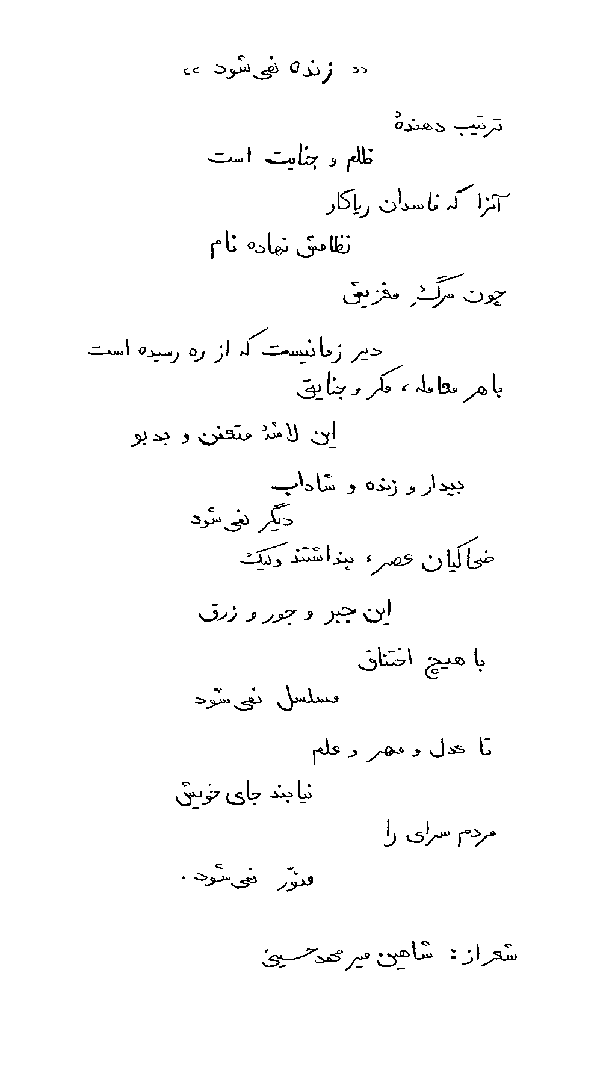 « زنده نمی شود »
ترتیب دهندهٔ
ظلم و جنایت است
آنرا که فاسدان ریاکار
نظامش نهاده نام
چون مرگِ مغزیش
دیر زمانیست که از ره رسیده است
با هر معامله، مکر و جنایتی
این لاشهٔ متعفن و بدبو
بیدار و زنده و شاداب
دیگر نمی شود
ضحاکیان عصر، پنداشتند ولیک
این جبر و جور و زرق
با هیچ اختناق
مسلسل نمی شود
تا عدل و مهر و علم
نیابند جای خویش
مردم سرای را
منوّر نمی شود.
شعر از: شاهین میرمحمدحسینی